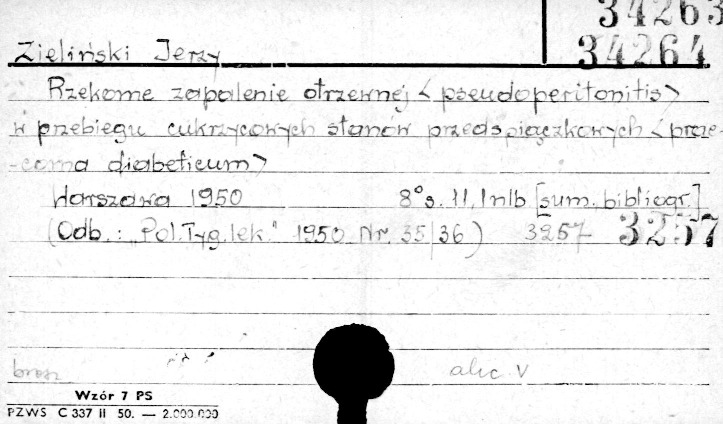 34263
Zieliński Jerzy 34264
Rzekome zapalenie otrzewnej <pseudoperitonitis>
w przebiegu cukrzycowych stanów przedśpiączkowych <prae-
-coma diabeticum>
Warszawa 1950 8° s. 11, 1nlb [sum. bibliogr.]
(Odb.: "Pol.Tyg.lek." 1950 Nr. 35/36) 3257 3257
brosz
akc V
Wzór 7 PS
PZWS C 337 II 50. — 2.000.000